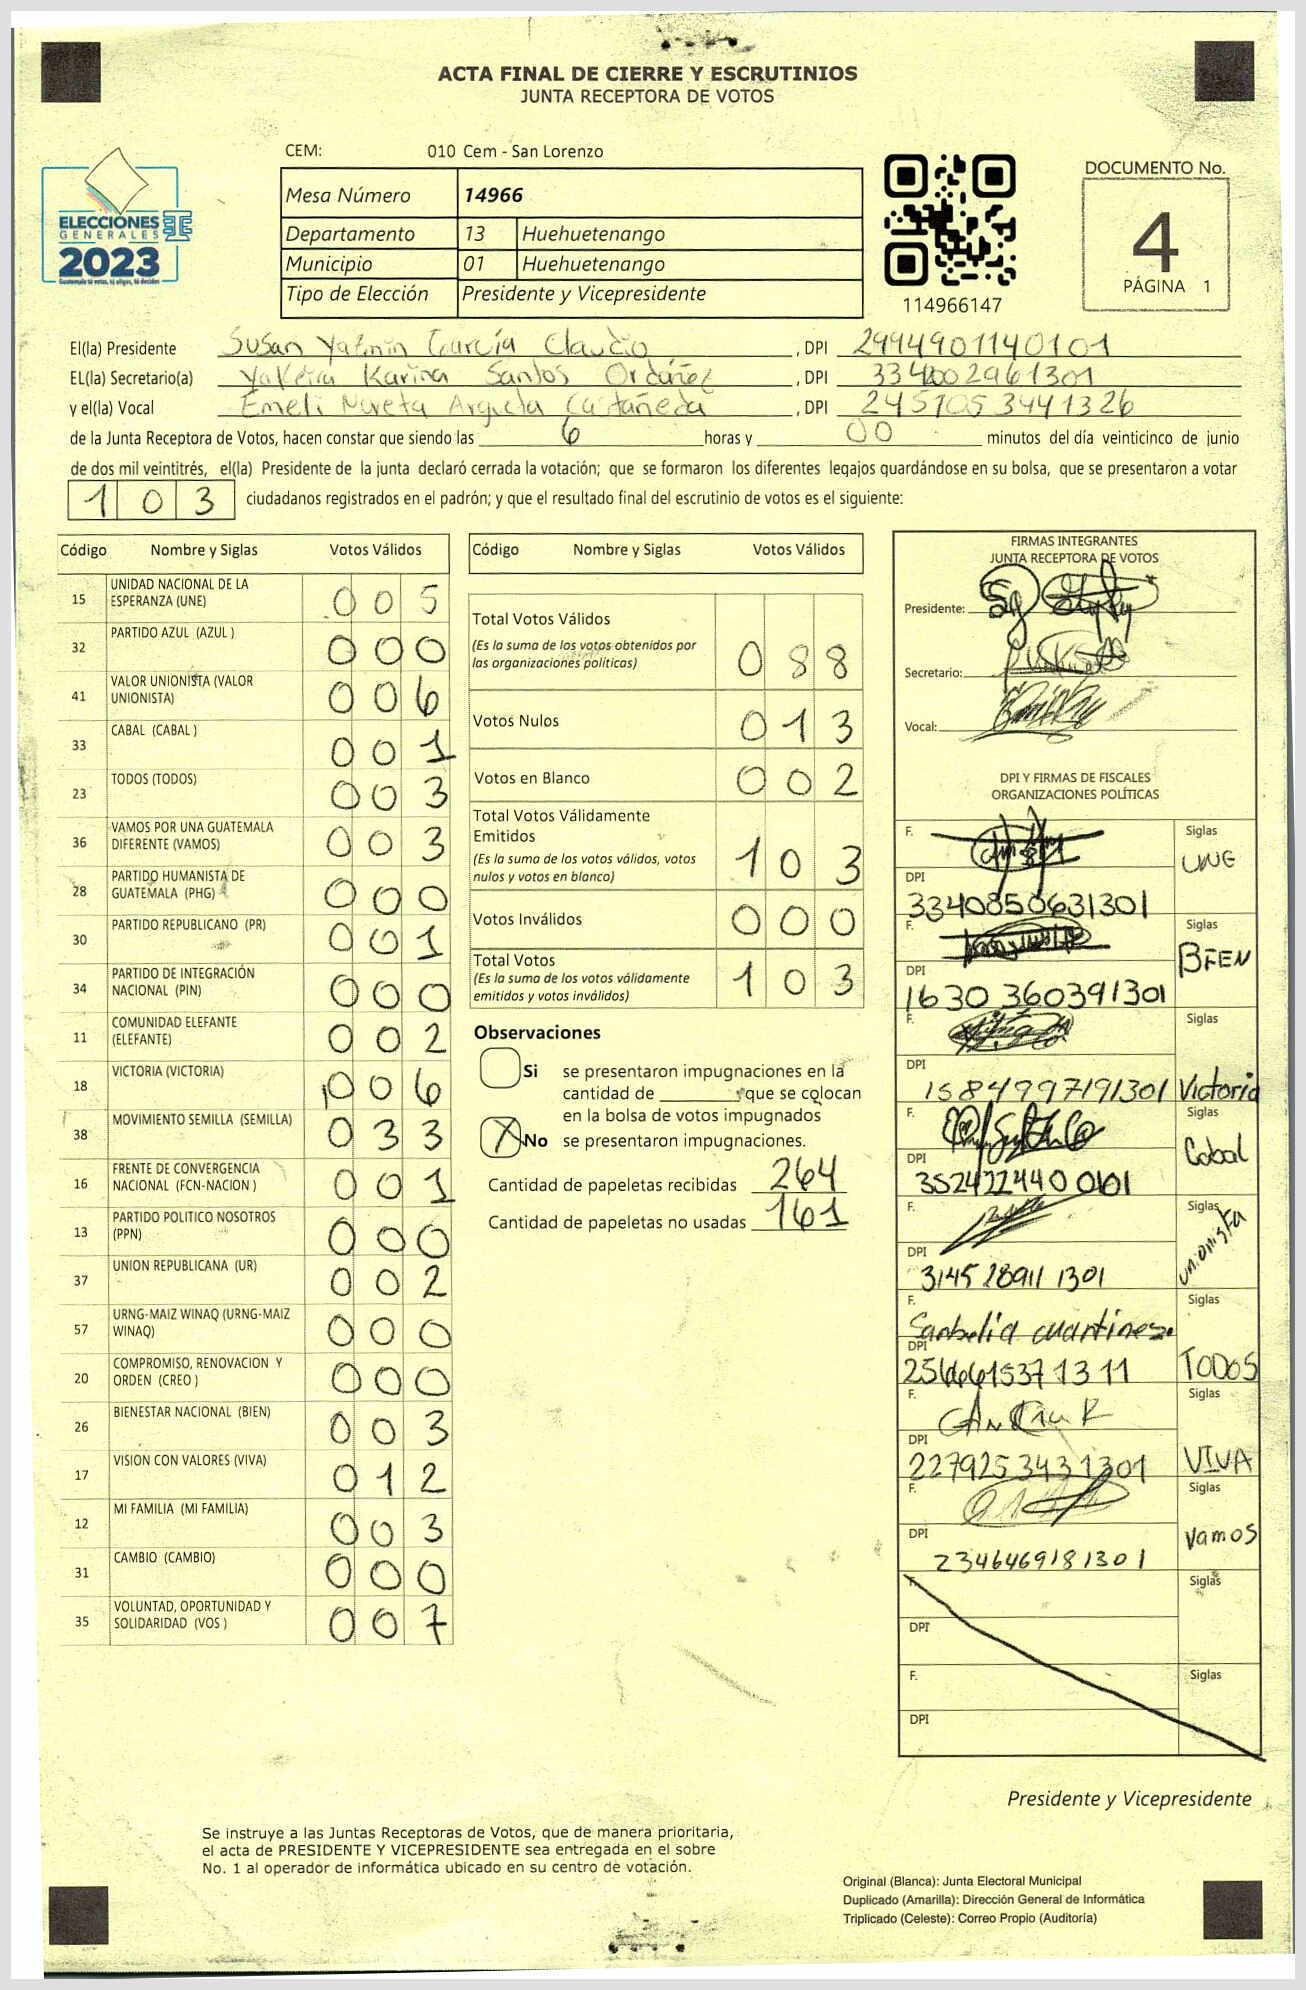 ACTA FINAL DE CIERRE Y ESCRUTINIOS
JUNTA RECEPTORA DE VOTOS
CEM: 010 Cem - San Lorenzo
Mesa Número 14966
Departamento 13 Huehuetenango
Municipio 01 Huehuetenango
Tipo de Elección Presidente y Vicepresidente
ELECCIONES
GENERALES
2023
114966147
DOCUMENTO No.
4
PÁGINA 1
El(la) Presidente Susan Yazmin García Claudio, DPI 29944901140101
EL(la) Secretario(a) Karina Santos Ordóñez, DPI 334002961301
y el(la) Vocal Emeli Argueta Castañeda, DPI 2451053441326
de la Junta Receptora de Votos, hacen constar que siendo las 6 horas y 00 minutos del día veinticinco de junio
de dos mil veintitrés, el(la) Presidente de la junta declaró cerrada la votación; que se formaron los diferentes legajos guardándose en su bolsa, que se presentaron a votar
103 ciudadanos registrados en el padrón; y que el resultado final del escrutinio de votos es el siguiente:
Código Nombre y Siglas Votos Válidos
15 UNIDAD NACIONAL DE LA ESPERANZA (UNE) 005
32 PARTIDO AZUL (AZUL ) 000
41 VALOR UNIONISTA (VALOR UNIONISTA) 006
33 CABAL (CABAL ) 001
23 TODOS (TODOS) 003
36 VAMOS POR UNA GUATEMALA DIFERENTE (VAMOS) 003
28 PARTIDO HUMANISTA DE GUATEMALA (PHG) 000
30 PARTIDO REPUBLICANO (PR) 001
34 PARTIDO DE INTEGRACIÓN NACIONAL (PIN) 000
11 COMUNIDAD ELEFANTE (ELEFANTE) 002
18 VICTORIA (VICTORIA) 006
38 MOVIMIENTO SEMILLA (SEMILLA) 033
16 FRENTE DE CONVERGENCIA NACIONAL (FCN-NACION ) 001
13 PARTIDO POLITICO NOSOTROS (PPN) 000
37 UNION REPUBLICANA (UR) 002
57 URNG-MAIZ WINAQ (URNG-MAIZ WINAQ) 000
20 COMPROMISO, RENOVACION Y ORDEN (CREO ) 000
26 BIENESTAR NACIONAL (BIEN) 003
17 VISION CON VALORES (VIVA) 012
12 MI FAMILIA (MI FAMILIA) 003
31 CAMBIO (CAMBIO) 000
35 VOLUNTAD, OPORTUNIDAD Y SOLIDARIDAD (VOS ) 007
Código Nombre y Siglas Votos Válidos
Total Votos Válidos 088
(Es la suma de los votos obtenidos por
las organizaciones políticas)
Votos Nulos 013
Votos en Blanco 002
Total Votos Válidamente
Emitidos 103
(Es la suma de los votos válidos, votos
nulos y votos en blanco)
Votos Inválidos 000
Total Votos 103
(Es la suma de los votos válidamente
emitidos y votos inválidos)
Observaciones
Si se presentaron impugnaciones en la
cantidad de ________ que se colocan
en la bolsa de votos impugnados
X No se presentaron impugnaciones.
Cantidad de papeletas recibidas 264
Cantidad de papeletas no usadas 161
FIRMAS INTEGRANTES
JUNTA RECEPTORA DE VOTOS
Presidente:
Secretario:
Vocal:
DPI Y FIRMAS DE FISCALES
ORGANIZACIONES POLÍTICAS
F. Siglas UNE
DPI 3340850631301
F. Siglas BIEN
DPI 1630 360391301
F. Siglas Victoria
DPI 1584997191301
F. Siglas Cabal
DPI 352422440 0101
F. Siglas unionista
DPI 3145 28911 1301
F. Siglas TODOS
DPI
F. Siglas VIVA
DPI 2279253431301
F. Siglas Vamos
DPI 2346469181301
F. Siglas
DPI
F. Siglas
DPI
Presidente y Vicepresidente
Se instruye a las Juntas Receptoras de Votos, que de manera prioritaria,
el acta de PRESIDENTE Y VICEPRESIDENTE sea entregada en el sobre
No. 1 al operador de informática ubicado en su centro de votación.
Original (Blanca): Junta Electoral Municipal
Duplicado (Amarilla): Dirección General de Informática
Triplicado (Celeste): Correo Propio (Auditoría)